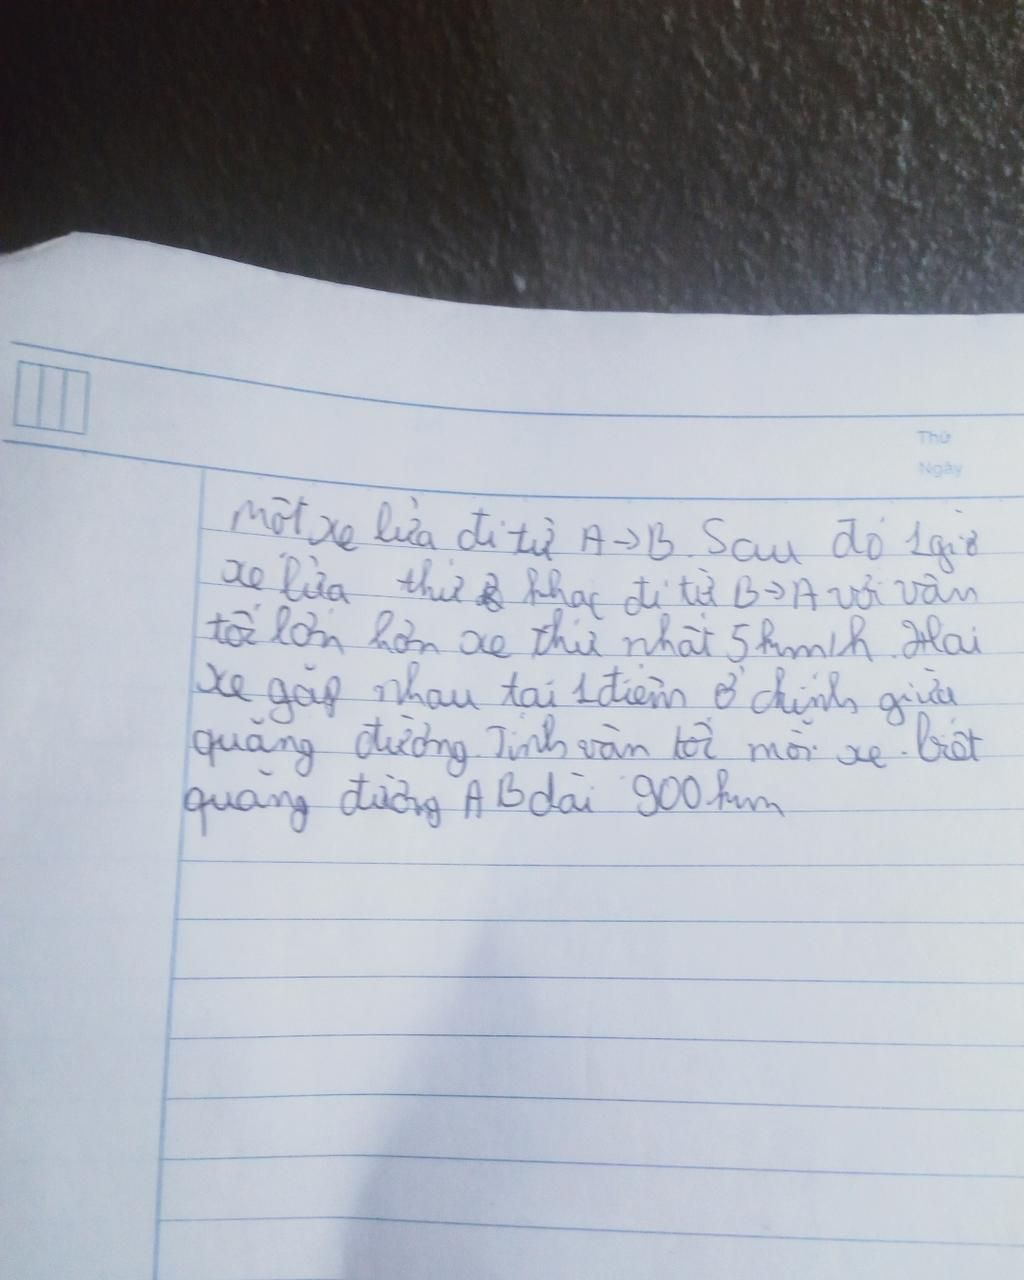 Thứ
Ngày
Một xe lửa đi từ A→B. Sau đó 1 giờ
xe lửa thứ khác đi từ B→A với vận
tốc lớn hơn xe thứ nhất 5km/h. Hai
xe gặp nhau tại 1 điểm ở chính giữa
quãng đường. Tính vận tốc mỗi xe. biết
quãng đường AB dài 900km